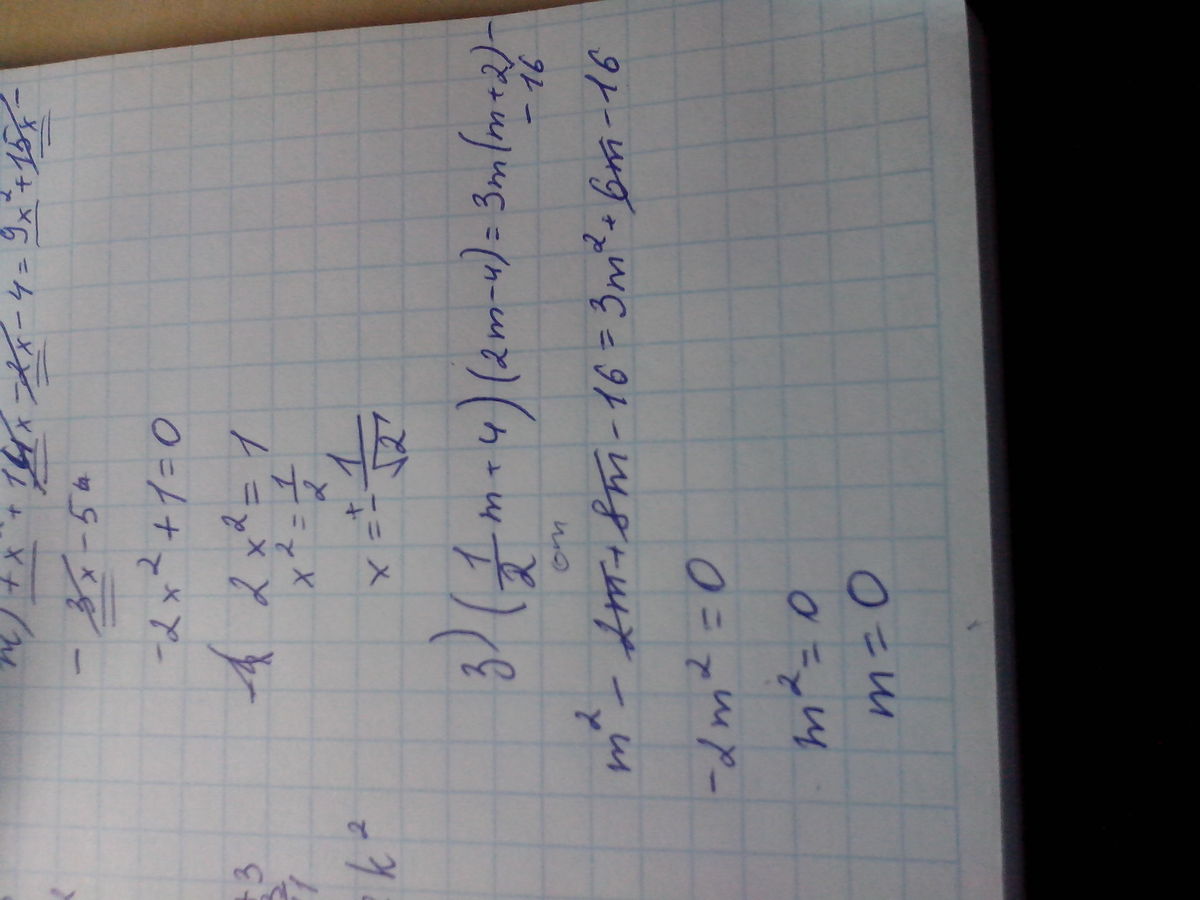 + x² + 14x - 2x - 4 = 9x² + 15x -
- 3x - 5
-2x² + 1 = 0
2x² = 1
x² = 1/2
x = ± 1/√2
3) (1/2 m + 4) (2m - 4) = 3m(m + 2) -
- 16
m² - 2m + 8m - 16 = 3m² + 6m - 16
-2m² = 0
m² = 0
m = 0
+3
k²